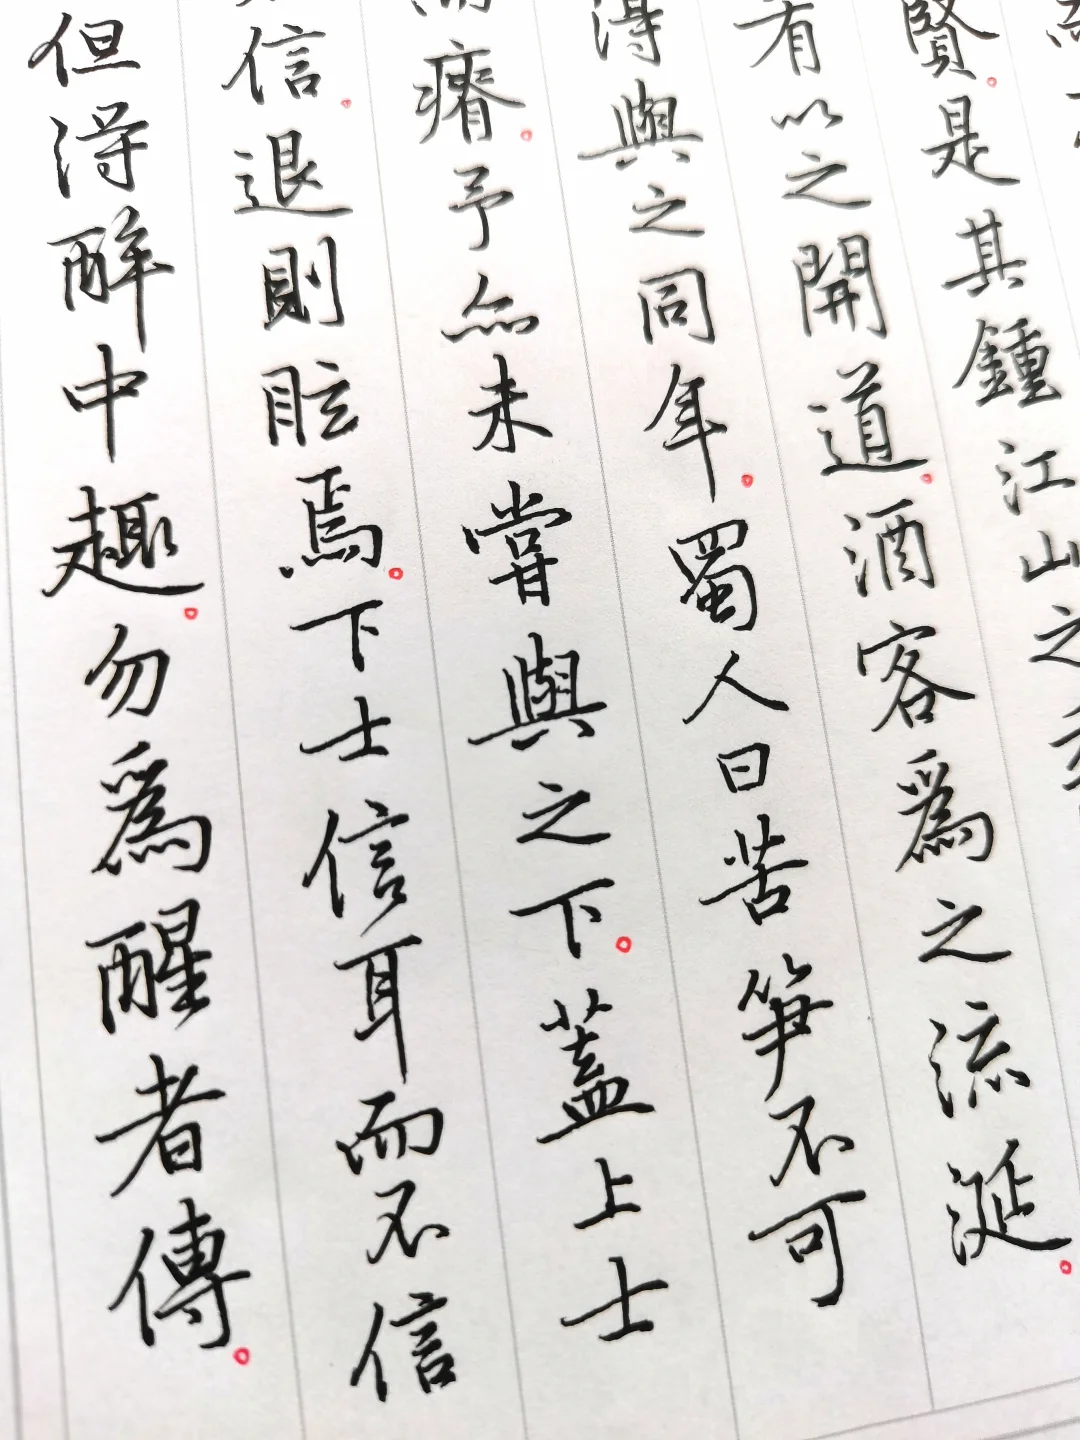 賢。是其鍾江山之
有以之開道。酒客爲之流涎。
得與之同年。蜀人曰苦笋不可
而瘠。予亦未嘗與之下。蓋上士
信。退則眩焉。下士信耳而不信
但得醉中趣。勿爲醒者傳。